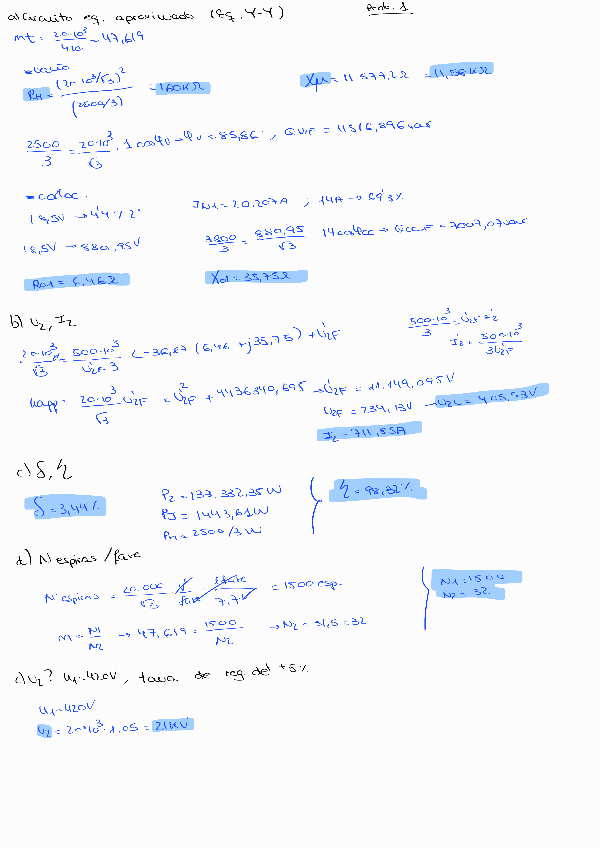 Prob. 1
a) Circuito eq. aproximado (Eq. Y-Y)
mt = 20·10³/420 = 47,619
RH = (20·10³/√3)²/(2500/3) = 160KΩ
Xµ = 11577,2Ω = 11,58KΩ
2500/3 = 20·10³/√3 · 1 cosφv → φv = 85,86°, QvF = 11516,896 var
18,5V → 4'4%
IN1 = 20,207A ; 14A → 69'3%
18,5V → 880,95V
= 880,95/√3 14 cosφcc → QccF = 7007,07 var
Rcc1 = 6,46Ω
Xd = 35,75Ω
b) U2, I2
500·10³/3 = U'2F I'2
20·10³/√3 = 500·10³/U'2F·3 (-36,87 (6,46 + j35,75) + U'2F
I'2 = 500·10³/3U'2F
20·10³/√3 U'2F = U'²2F + 4436340,695 → U'2F = 11.149,095V
U2F = 234,13V → U2L = 405,53V
I2 = 711,85A
c) δ, η
δ = 3,44%
P2 = 133.332,35W
PJ = 1443,61W
PH = 2500/3 W
η = 98,32%
d) N espiras/fase
N espiras = 20.000/√3 = 1500 esp.
7,7V
m = N1/N2 → 47,619 = 1500/N2 → N2 = 31,5 = 32
N1 = 1500
N2 = 32
U2? U1 = 420V, toma de reg. del +5%
U1 = 420V
U2 = 20·10³ · 1,05 = 21KV